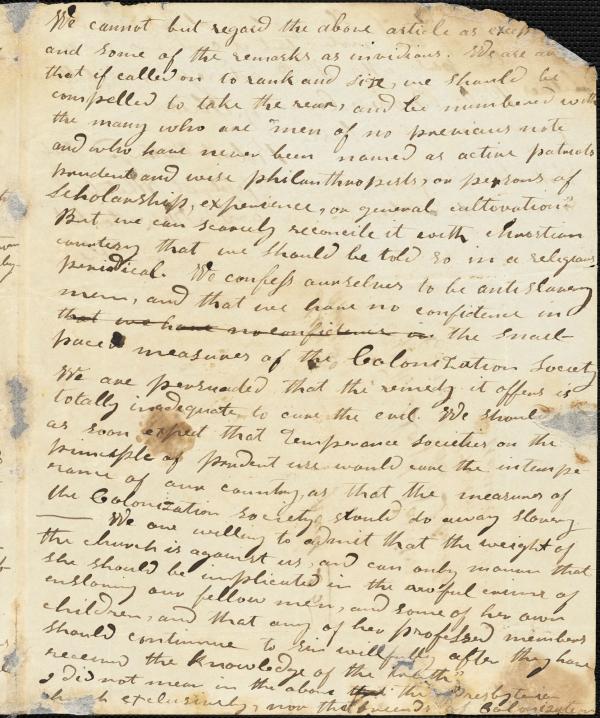 We cannot but regard the above article as
and some of the remarks as invidious. We are
that if called on to rank and size, we should be
compelled to take the rear, and be numbered with
the many who are "men of no previous note
and who have never been named as active patriots
prudent and wise philanthropists, or persons of
Scholarship, experience, or general cultivation"
But we can scarcely reconcile it with christian
courtesy that we should be told so in a religious
periodical. We confess ourselves to be antislavery
men, and that we have no confidence in
that we have no confidence in the snael-
paced measures of the Colonization Society
We are persuaded that the remedy it offers is
totally inadequate to cure the evil. We should
as soon expect that Temperance societies on the
principle of prudent use would cure the intempe
rance of our country, as that the measures of
the Colonization Society should do away slavery
— We are willing to admit that the weight of
the church is against us, and can only mourn that
she should be implicated in the awful crime of
enslaving our fellow men, and some of her own
children, and that any of her professed members
should continue to sin willfully after they have
received the knowledge of the truth"
I did not mean in the above the Presbyterian
exclusively, nor the friends of Colonization